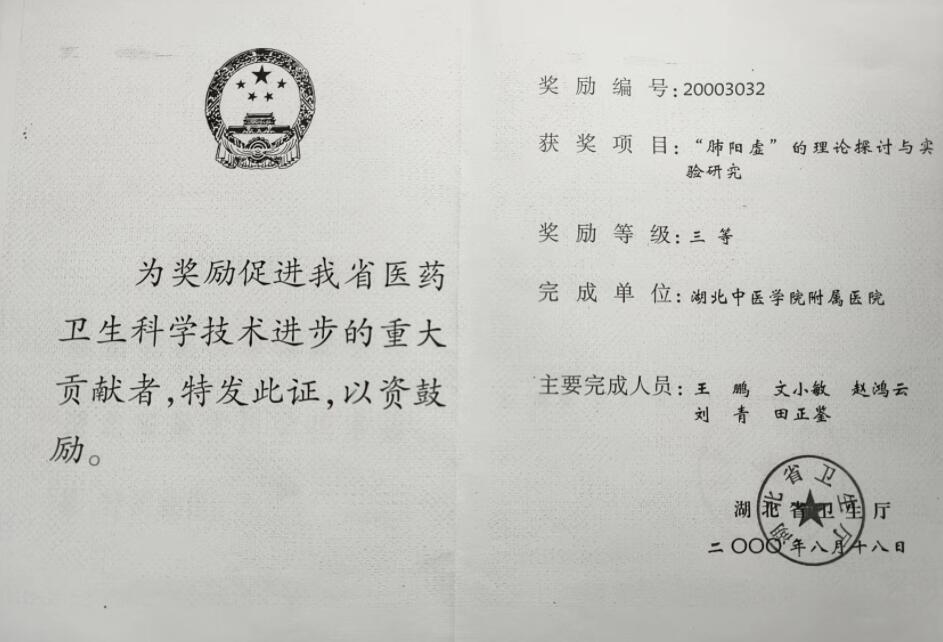 为奖励促进我省医药
卫生科学技术进步的重大
贡献者,特发此证,以资鼓
励。
奖励编号:20003032
获奖项目:“肺阳虚”的理论探讨与实
验研究
奖励等级:三等
完成单位:湖北中医学院附属医院
主要完成人员:王 鹏 文小敏 赵鸿云
刘 青 田正鉴
湖北省卫生厅
湖北省卫生厅
二〇〇〇年八月十八日